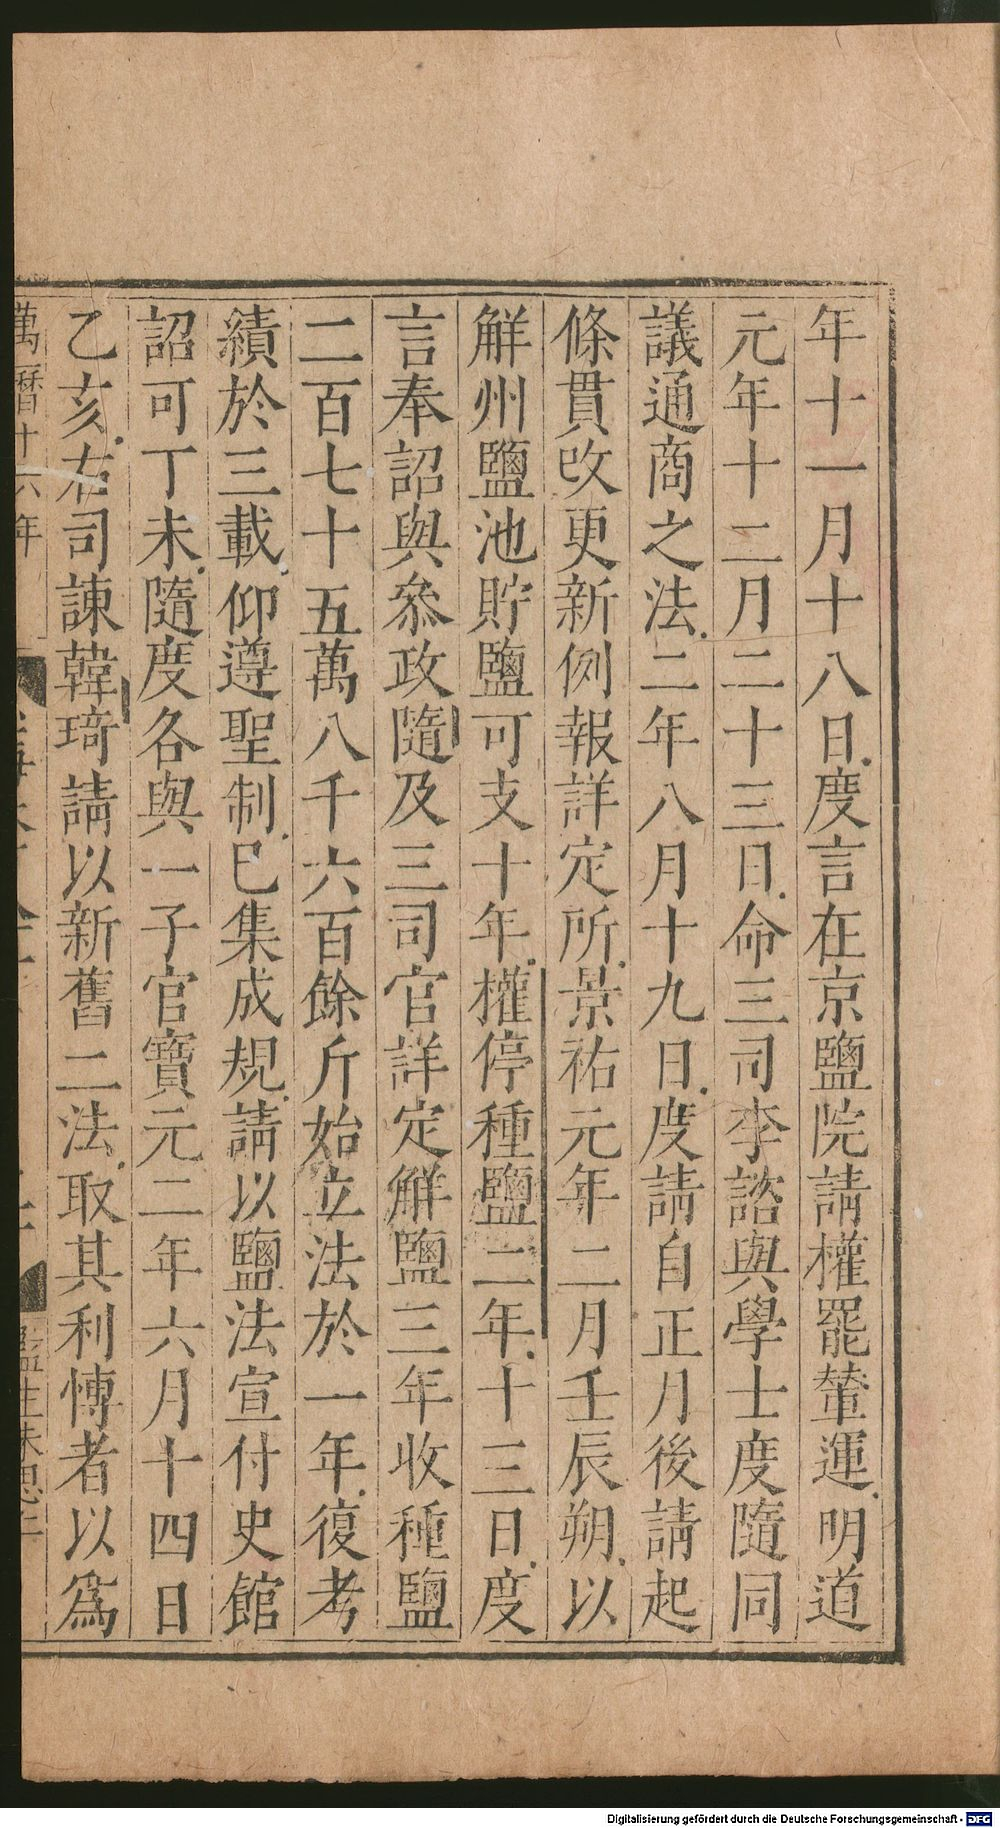 年十一月十八日度言在京鹽院請權罷輦運明道
元年十二月二十三日命三司李諮與學士度隨同
議通商之法二年八月十九日度請自正月後請起
條貫改更新例報詳定所景祐元年二月壬辰朔以
解州鹽池貯鹽可支十年權停種鹽二年十三日度
言奉詔與叅政隨及三司官詳定解鹽三年收種鹽
二百七十五萬八千六百餘斤始立法於一年復考
績於三載仰遵聖制已集成規請以鹽法宣付史館
詔可丁未隨度各與一子官寶元二年六月十四日
乙亥右司諫韓琦請以新舊二法取其利愽者以爲
萬曆十六年
監生朱思
Digitalisierung gefördert durch die Deutsche Forschungsgemeinschaft - DFG